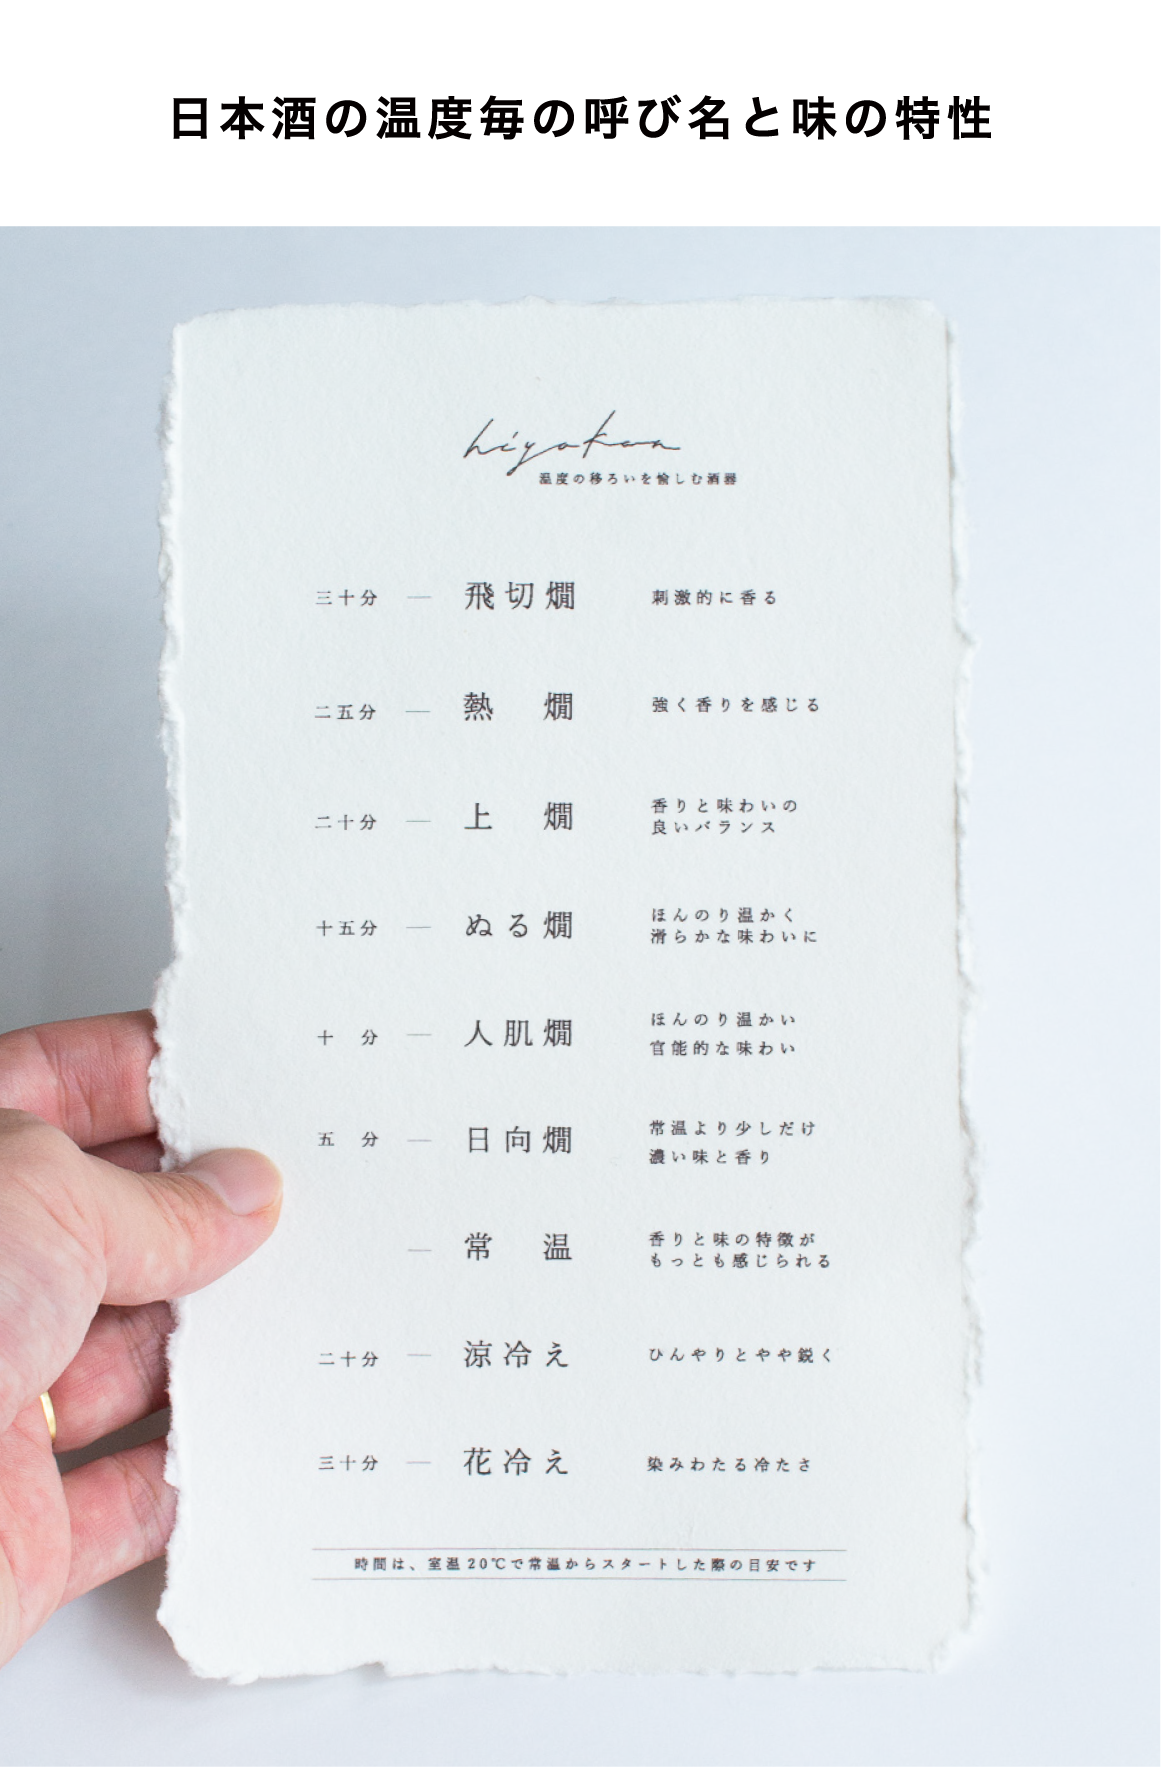 日本酒の温度毎の呼び名と味の特性
hiyakan
温度の移ろいを愉しむ酒器
三十分 — 飛切燗 刺激的に香る
二五分 — 熱 燗 強く香りを感じる
二十分 — 上 燗 香りと味わいの
良いバランス
十五分 — ぬる燗 ほんのり温かく
滑らかな味わいに
十 分 — 人肌燗 ほんのり温かい
官能的な味わい
五 分 — 日向燗 常温より少しだけ
濃い味と香り
— 常 温 香りと味の特徴が
もっとも感じられる
二十分 — 涼冷え ひんやりとやや鋭く
三十分 — 花冷え 染みわたる冷たさ
時間は、室温20℃で常温からスタートした際の目安です